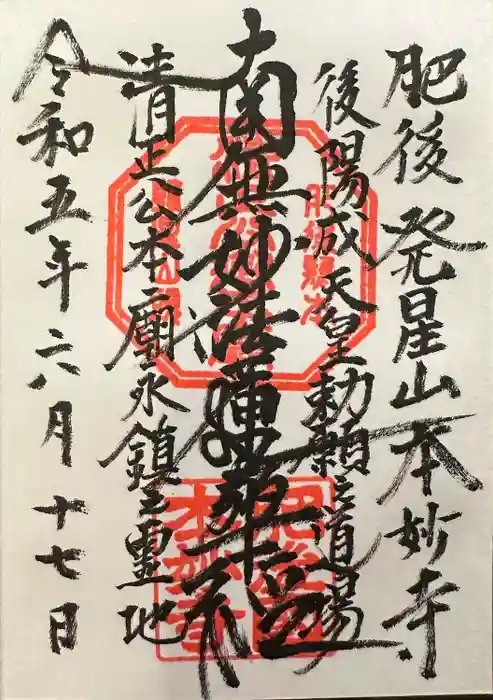 肥後 発星山本妙寺
後陽成天皇勅願之道場
南無妙法蓮華経
清正公本廟永鎮之霊地
令和五年六月十七日
肥後国
本妙寺